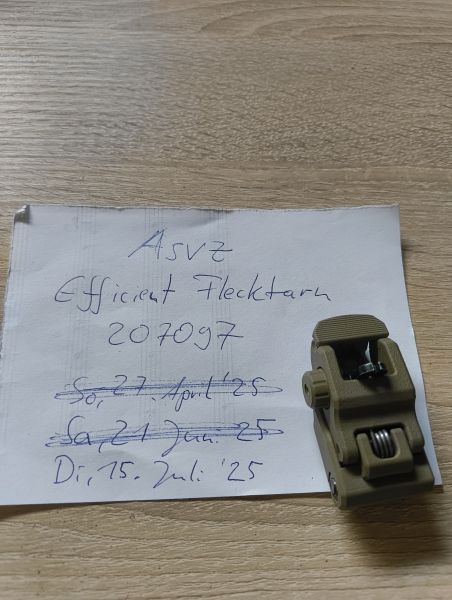 Asvz
Efficient Flecktarn
207097
So, 27. April '25
Sa, 21 Juni 25
Di, 15. Juli '25